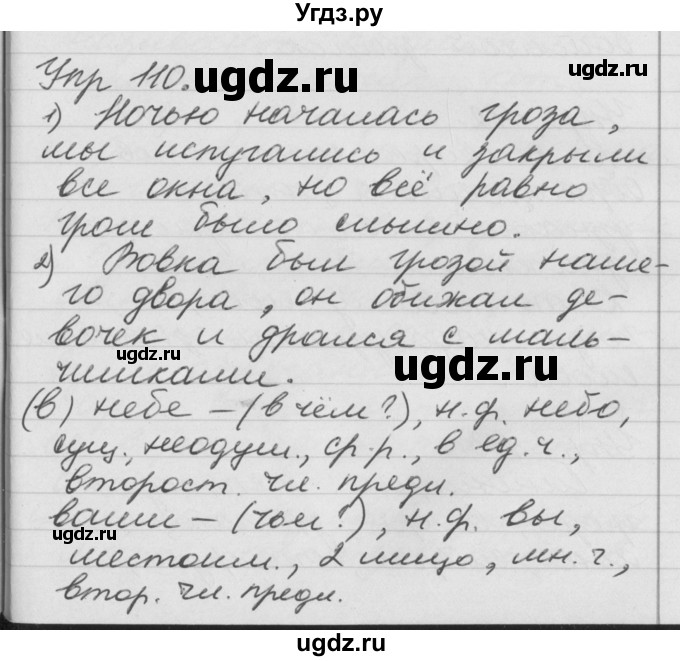 Угдз.ру
Упр 110.
ugdz.ru
1) Ночью началась гроза,
мы испугались и закрыли
все окна, но всё равно
гром было слышно.
2) Вовка был грозой наше-
го двора, он обижал де-
вочек и дрался с маль-
ugdz.ru
ugdz.ru
чишками.
(в) небе – (в чём?), н.ф. небо,
сущ., неодуш., ср.р., в ед.ч.,
второст. чл. предл.
ваши – (чьи?), н.ф. вы,
ugdz.ru
местоим., 2 лицо, мн.ч.,
втор. чл. предл.
ugdz.ru